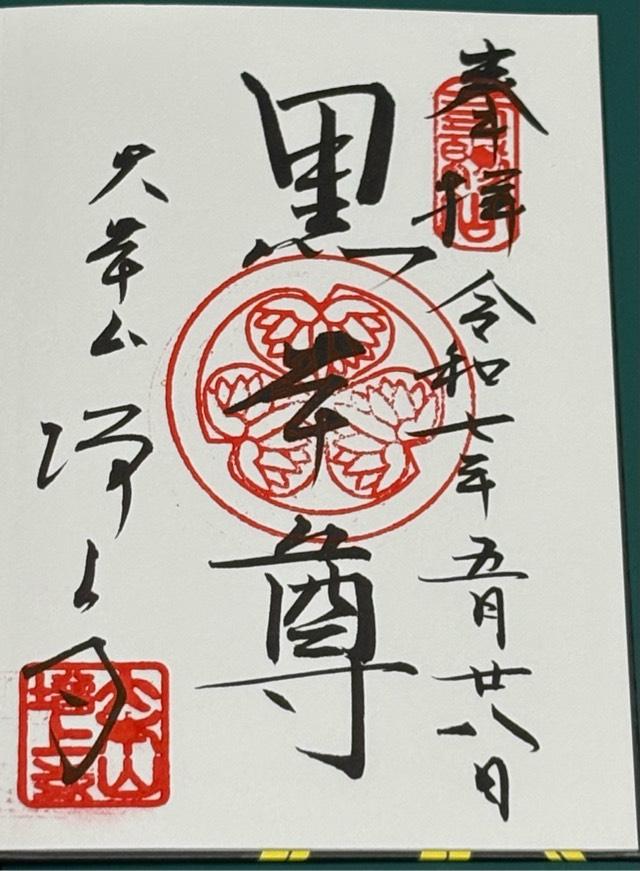 奉拝 令和七年五月廿八日
黒本尊
大本山 増上寺
大本山
増上寺